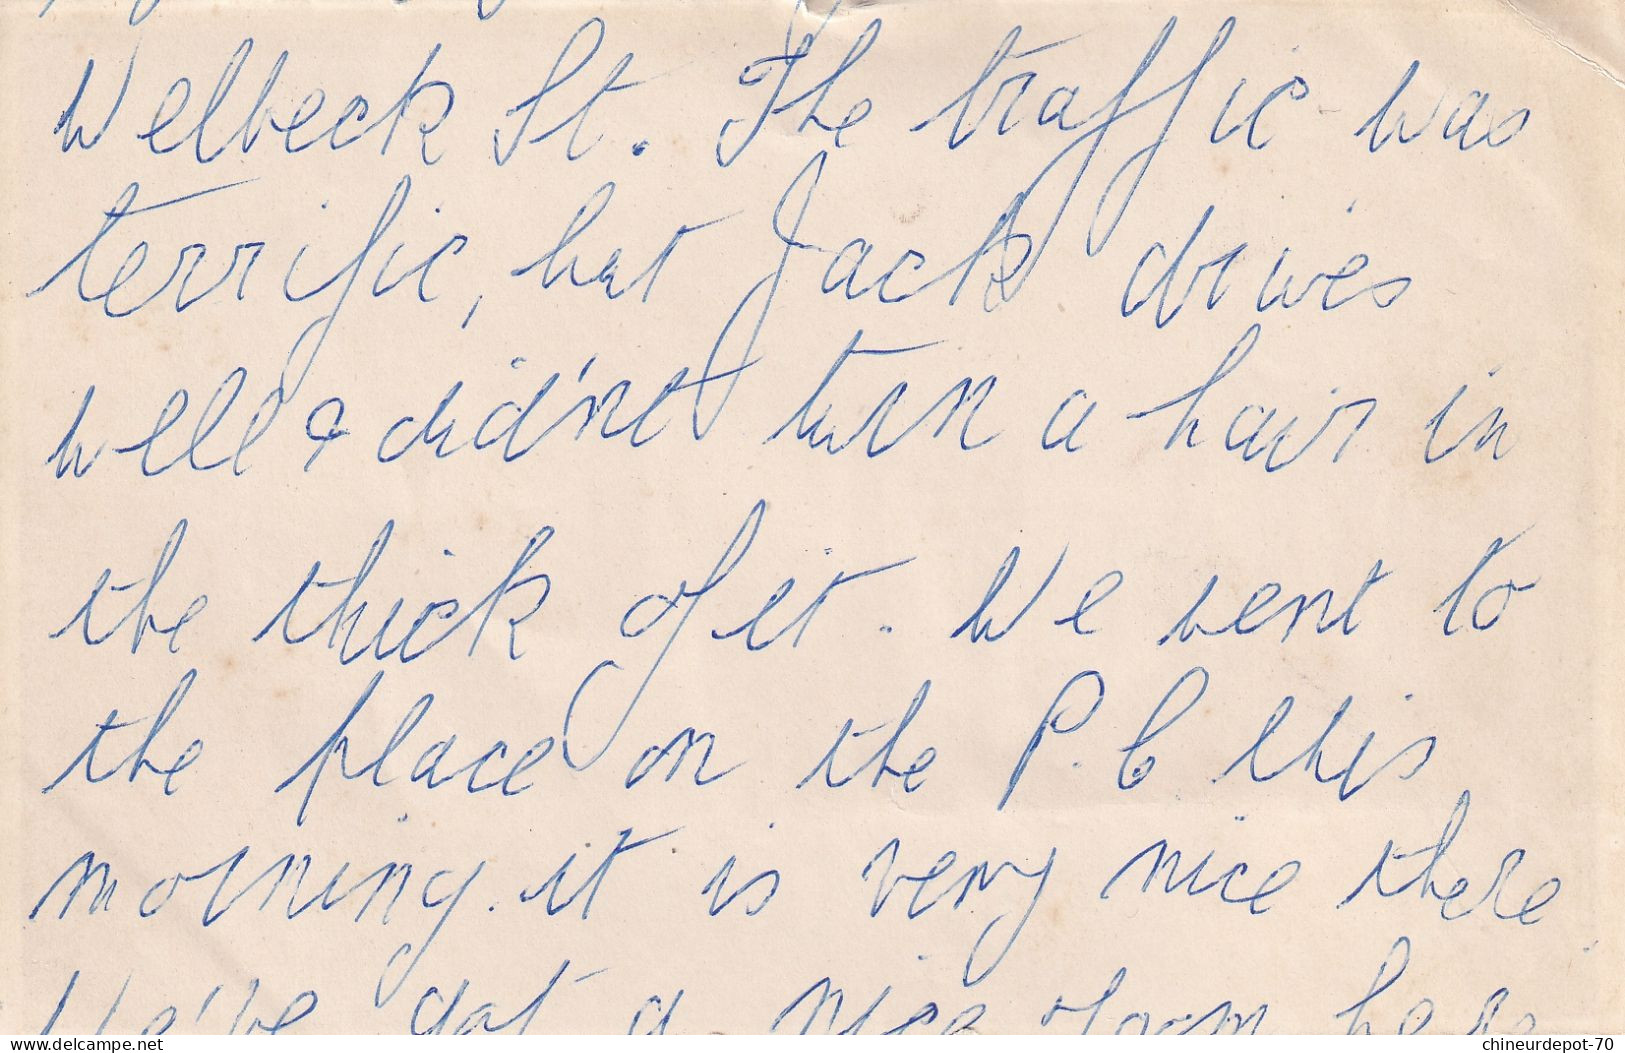 Welbeck St. The traffic was
terrific, but Jack drives
well & did'nt turn a hair in
the thick of it. We went to
the place on the P.C this
morning. it is very nice there
We've got a nice room here
delcampe.net
chineurdepot-70